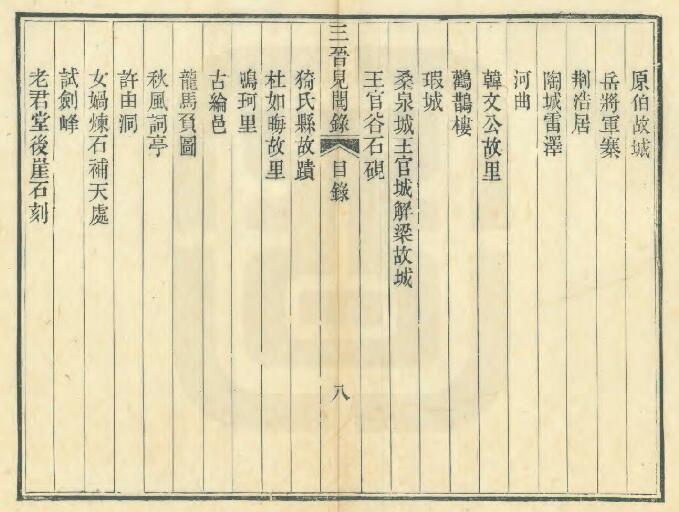 原伯故城
岳將軍寨
荆浩居
陶城雷澤
河曲
韓文公故里
鸛鵲樓
瑕城
桑泉城王官城解梁故城
王官谷石硯
三晉見聞錄 目錄 八
猗氏縣故蹟
杜如晦故里
鳴珂里
古綸邑
龍馬負圖
秋風詞亭
許由洞
女媧煉石補天處
試劍峰
老君堂後崖石刻